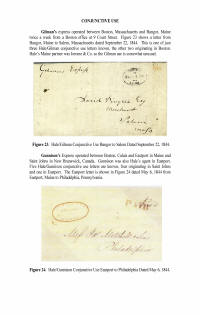 CONJUNCTIVE USE
Gilman's express operated between Boston, Massachusetts and Bangor, Maine
twice a week from a Boston office at 9 Court Street. Figure 23 shows a letter from
Bangor, Maine to Salem, Massachusetts dated September 22, 1844. This is one of just
three Hale/Gilman conjunctive use letters known, the other two originating in Boston.
Hale's Maine partner was Jerome & Co. so the Gilman use is somewhat unusual.
Gilmans Express
David Pingree Esq
Merchant
Salem
Mass
Figure 23 Hale/Gilman Conjunctive Use Bangor to Salem Dated September 22, 1844.
Gunnison's Express operated between Boston, Calais and Eastport in Maine and
Saint Johns in New Brunswick, Canada. Gunnison was also Hale's agent in Eastport.
Five Hale/Gunnison conjunctive use letters are known, four originating in Saint Johns
and one in Eastport. The Eastport letter is shown in Figure 24 dated May 6, 1844 from
Eastport, Maine to Philadelphia, Pennsylvania.
Philadelphia
Figure 24 Hale/Gunnison Conjunctive Use Eastport to Philadelphia Dated May 6, 1844.